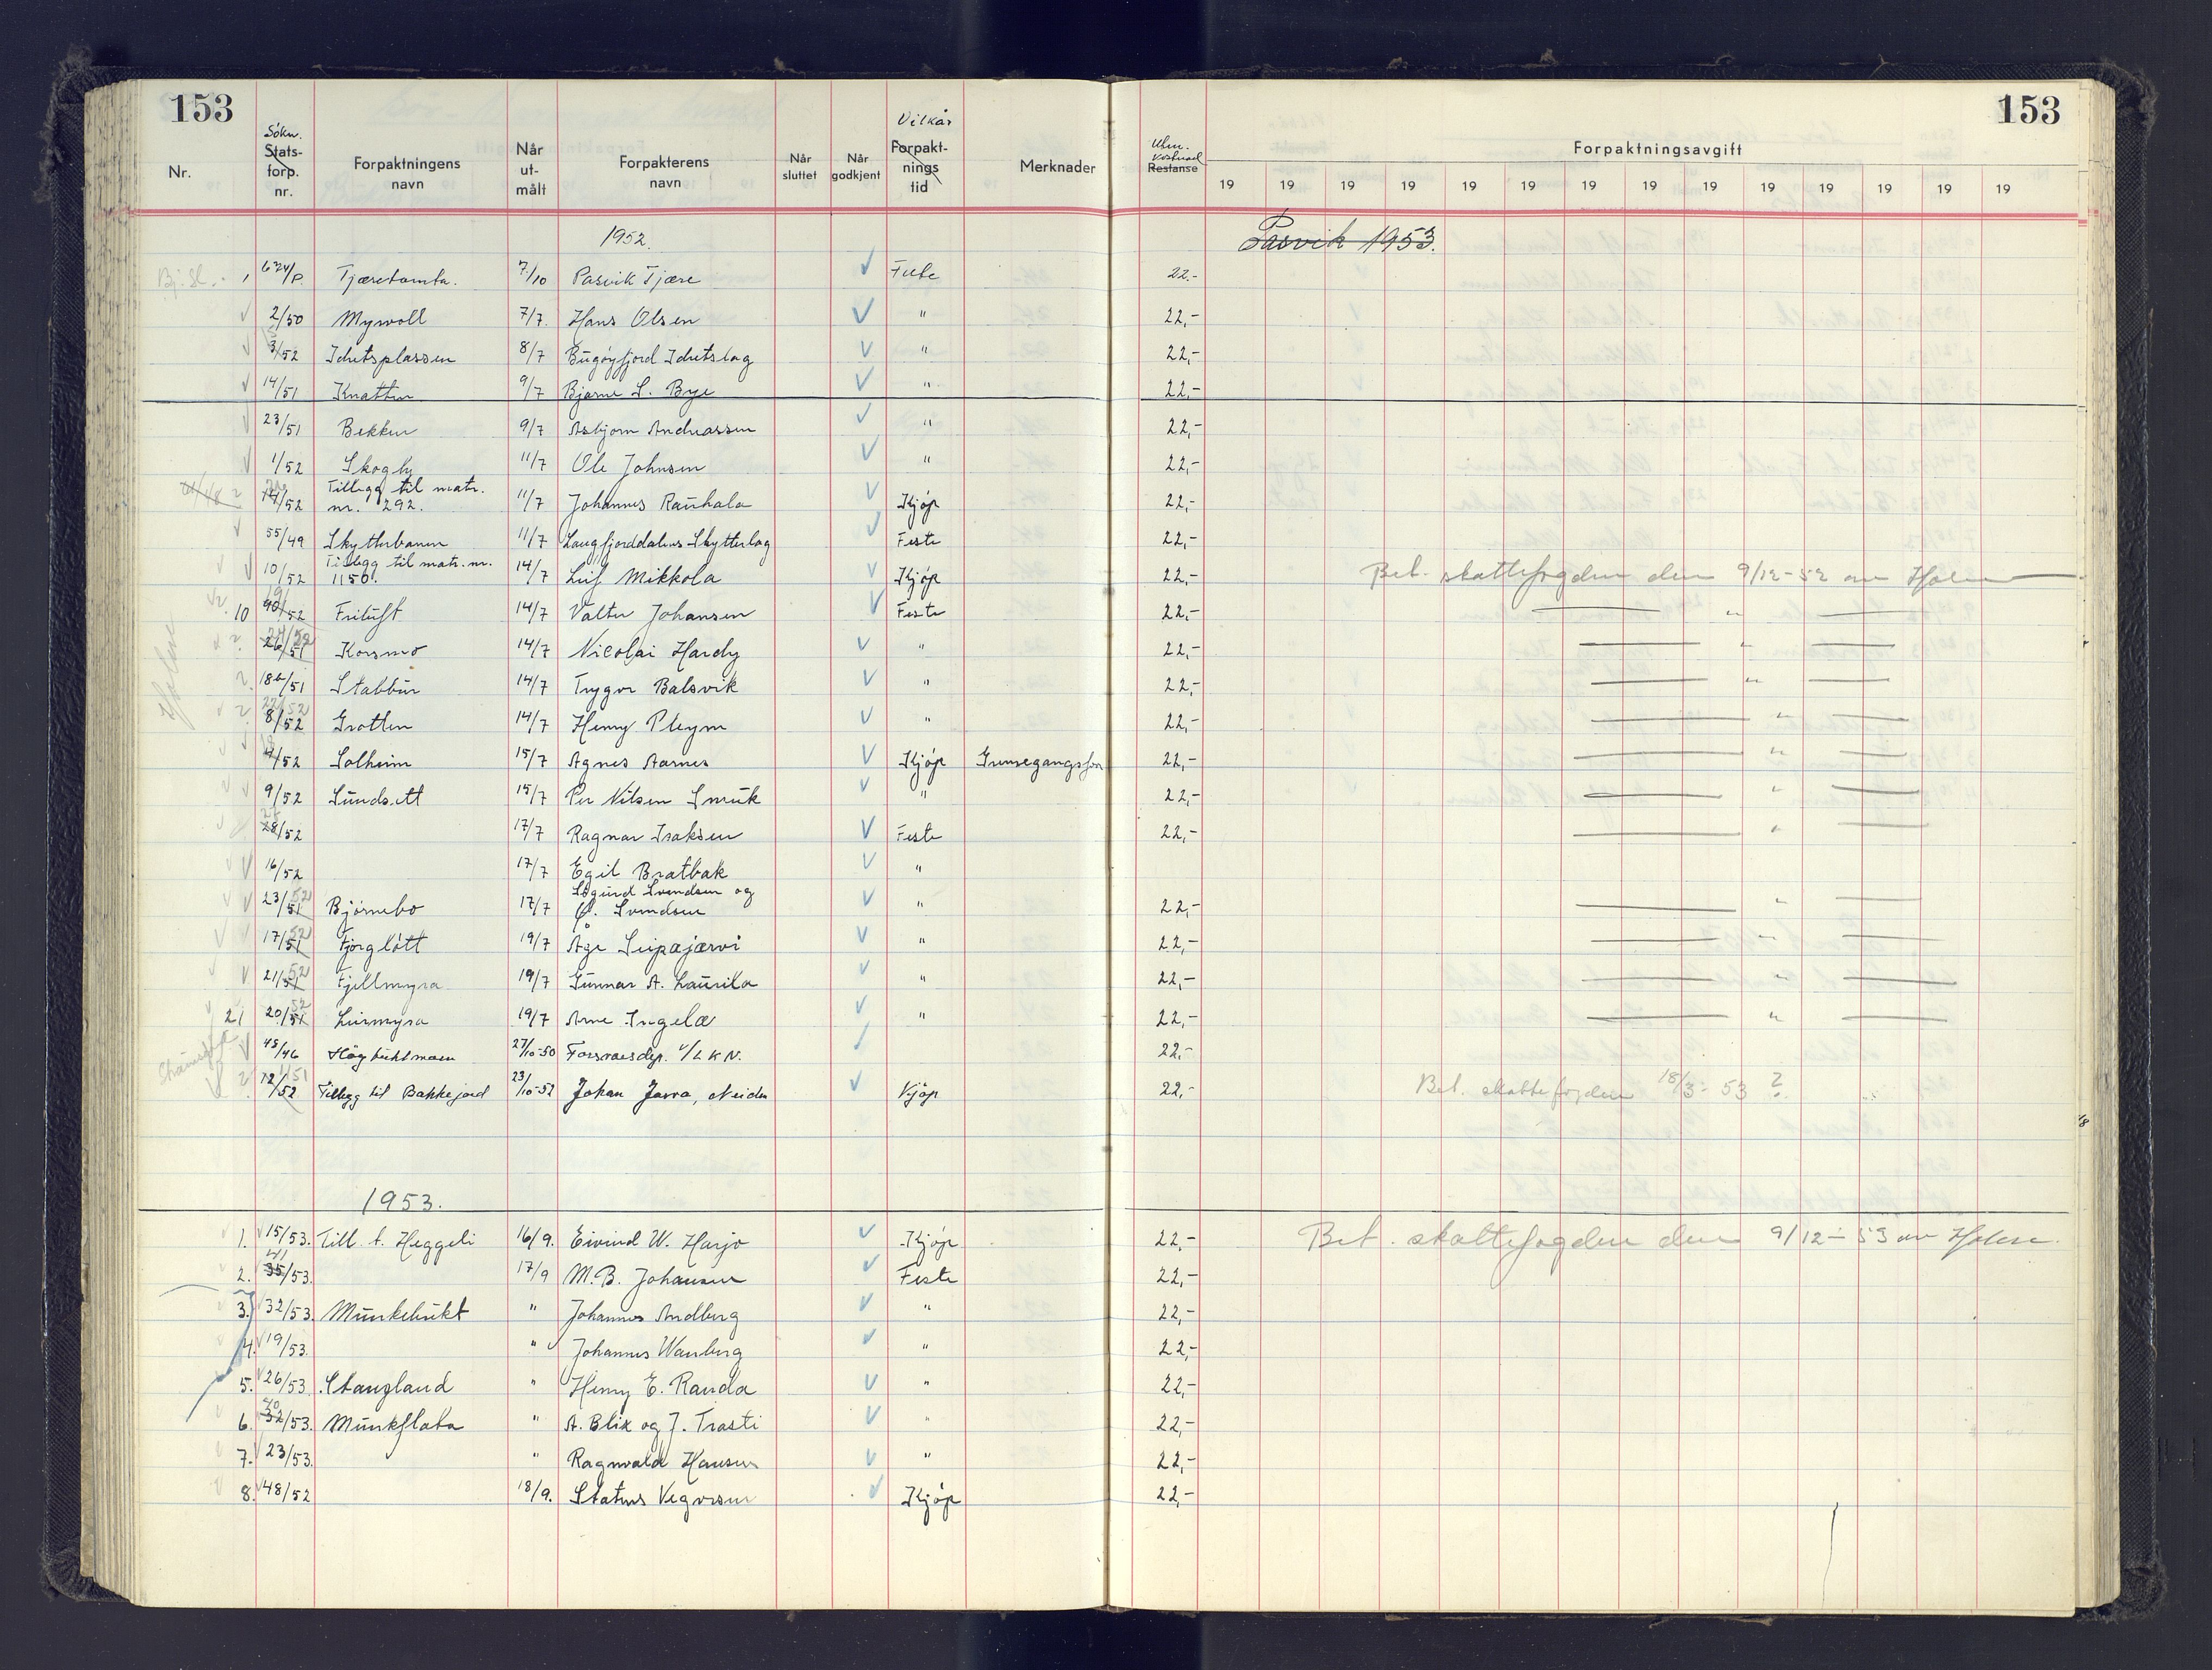 153
153
Nr.
Søkn.
Stats-
forp.
nr.
Forpaktningens
navn
Når
ut-
målt
Forpakterens
navn
Når
sluttet
Når
godkjent
Vilkår
Forpakt-
nings
tid
Merknader
Restanse
Forpaktningsavgift
19 19 19 19 19 19 19 19 19 19 19 19 19 19
1952.
Pasvik 1953.
Tjæretomta. 7/10 Pasvik Tjære Feste 22.-
2/50 Myrvoll 7/7. Hans Olsen " 22,-
3/52 Idretsplassen 8/7 Bugøyfjord Idretslag " 22,-
14/51 Knatten 9/7 Bjarne S. Bye " 22,-
23/51 Bekken 9/7 Asbjørn Andreassen " 22,-
1/52 Skogly 11/7 Ole Johnsen " 22,-
14/52 Tillegg til matr.
nr. 292. 11/7 Johannes Rauhala Kjøp 22,-
55/49 Skytterbanen 11/7 Langfjorddalens Skytterlag Feste 22,-
10/52 Tillegg til matr. nr.
1150. 14/7 Leif Mikkola Kjøp 22,- Bet. skattefogden den 9/12-52 av Holm
10 52 Friluft 14/7 Valter Johansen Feste 22,- "
26/51 Korsmo 14/7 Nicolai Hardy " 22,- "
18b/51 Stabbur 14/7 Trygve Balsvik " 22,- "
8/52 Grotten 14/7 Henry Pleym " 22,- "
4/52 Solheim 15/7 Agnes Aarnes Kjøp 22,- "
9/52 Sundsett 15/7 Per Nilsen Smuk " 22,- "
28/52 17/7 Ragnar Isaksen Feste 22,- "
16/52 17/7 Egil Bratbak "
23/51 Bjørnebo 17/7 Sigurd Svendsen og
Ø. Svendsen " 22,- "
17/51 52 Fjørglótt 19/7 Åge Seipajærvi " 22,- "
21/51 52 Fjellmyra 19/7 Gunnar A. Laurila " 22,- "
21 20/51 52 Leirmyra 19/7 Arne Ingelæ " 22,- "
45/46 Høybuktmoen 27/10-50 Forsvarsdep. v/L K N. 22.-
12/52 Tillegg til Bakkejord 23/10-52 Johan Jarra, Neiden Kjøp 22,- Bet. skattefogden 18/3-53 ?
1953.
1. 15/53. Till. t. Heggeli 16/9. Eivind W. Harjo Kjøp 22,- Bet. skattefogden den 9/12-53 av Holm
2. 35/53. 17/9 M.B. Johansen Feste 22,-
3. 32/53. Munkebukt " Johannes Andberg " 22,-
4. 19/53. " Johannes Wanberg " 22,-
5. 26/53. Stangland " Henry E. Randa " 22,-
6. 32/53. Munkflata " A. Blix og J. Trasti " 22,-
7. 23/53. " Ragnvald Hansen " 22,-
8. 48/52 18/9. Statens Vegvesen Kjøp 22,-